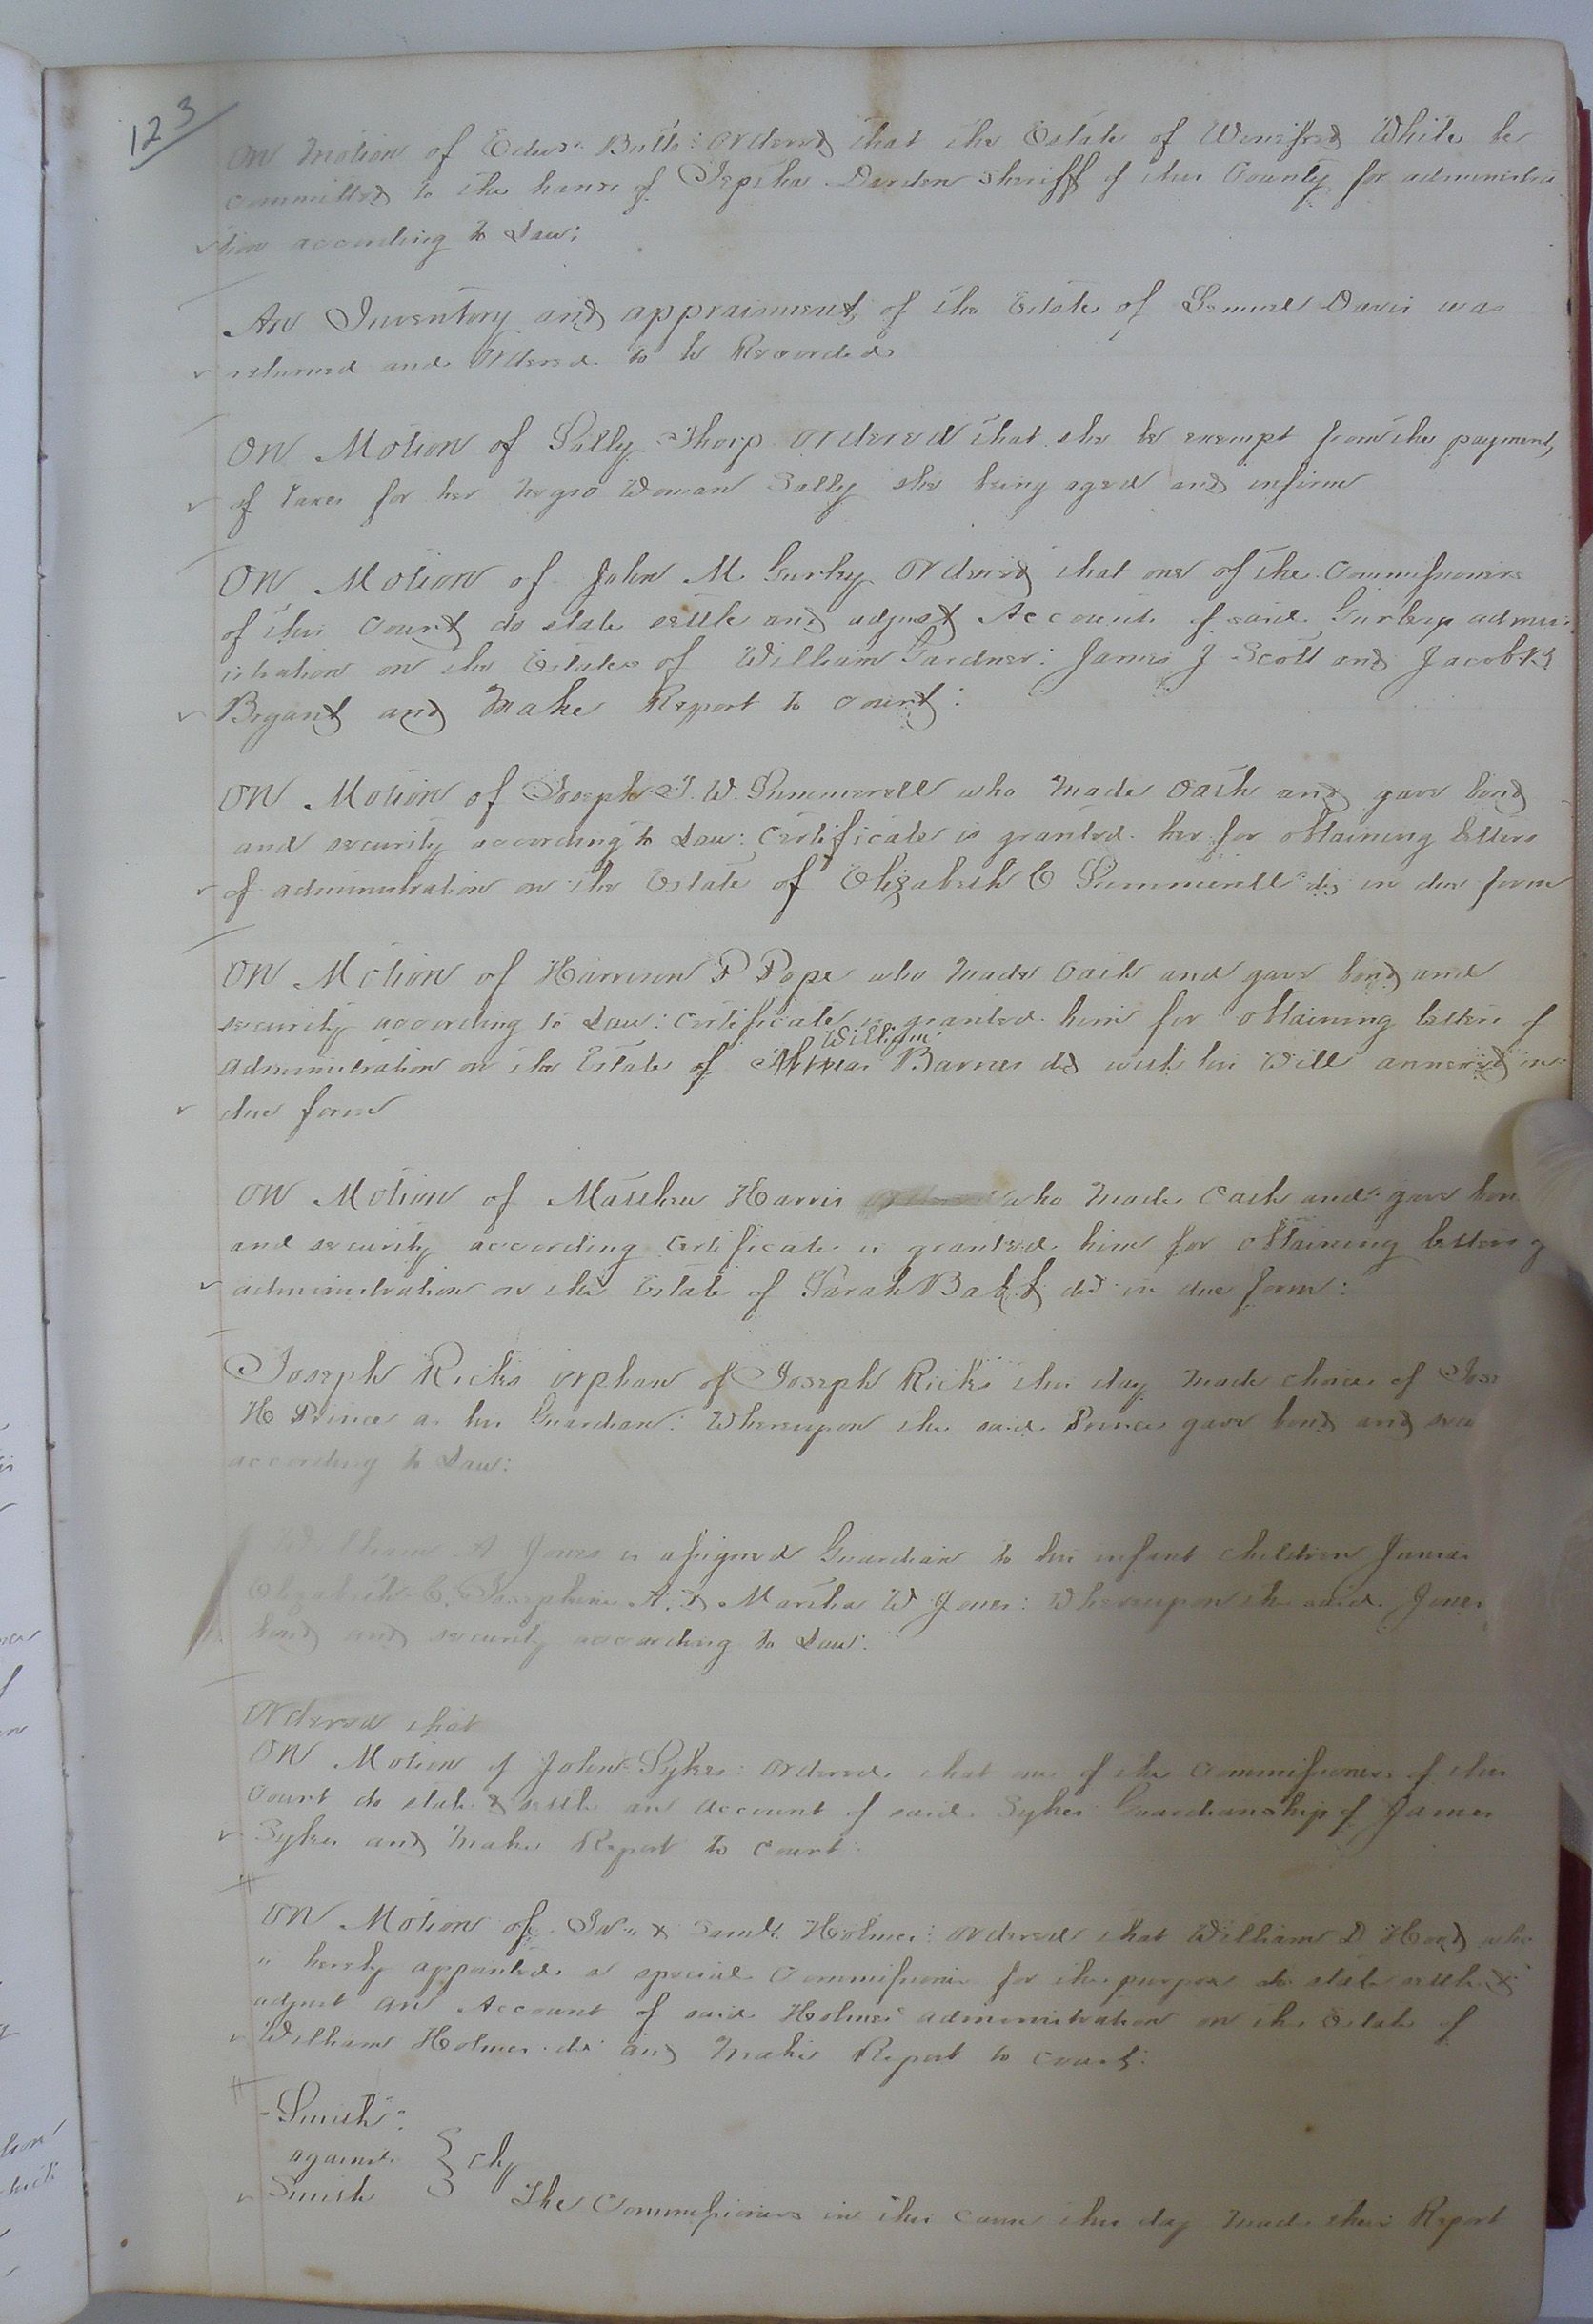 123
On Motion of Edwd. Butts: Ordered that the Estate of Winifred White be
committed to the hands of Jepsha Darden Sheriff of this County for administra
tion according to Law:
An Inventory and appraisment of the Estate of Lemuel Davis was
returned and Ordered to be Recorded
On Motion of Sally Thorp ordered that she be exempt from the payment
of taxes for her negro Woman Sally she being aged and infirm
On Motion of John M Gurley Ordered that one of the Commissioners
of this Court do state settle and adjust Account of said Gurleys admin
istration on the Estates of William Gardner: James J Scott and Jacob
Bryant and Make Report to Court:
On Motion of Joseph T. W. Summerell who Made Oath and gave bond
and security according to Law: Certificate is granted her for obtaining letters
of administration on the Estate of Elizabeth C Summerell dd in due form
On Motion of Harrison P Pope who Made Oath and gave bond and
security according to Law: Certificate is granted him for obtaining letters of
William
administration on the Estate of Barnes dd with his Will annexed in
due form
On Motion of Matthew Harris who Made Oath and gave bon
and security according Certificate is granted him for obtaining letters of
administration on the Estate of Sarah dd in due form:
Joseph Ricks orphan of Joseph Ricks this day Made choice of Jos
H Prince as his Guardian: Whereupon the said Prince gave bond and secu
according to Law:
William A Jones is assigned Guardian to his infant children James
Elizabeth C. Josephine A. & Martha W Jones: Whereupon the said Jones
bond and security according to Law:
Ordered that
On Motion of John Sykes: Ordered that one of the Commissioners of this
Court do state & settle an account of said Sykes Guardianship of James
Sykes and Make Report to Court:
On Motion of & Saml. Holmes: Ordered that William D Hood who
is hereby appointed a special Commissioner for the purpose do state settle &
adjust an Account of said Holmes administration on the Estate of
William Holmes dd and Make Report to Court:
Smith
against } Chy
Smith
The Commissioners in this cause this day Made their Report